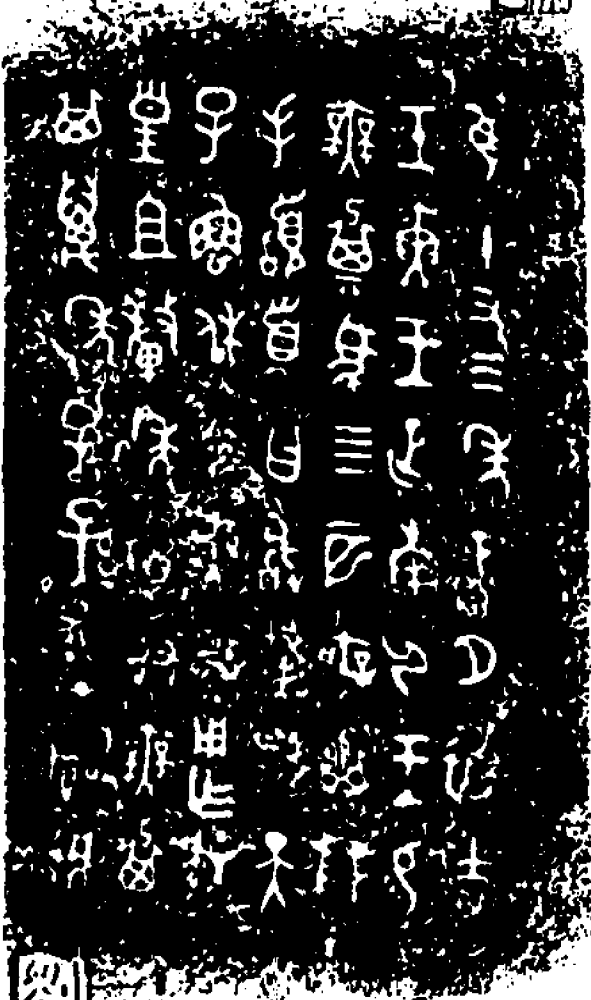 隹十又三年正月初吉
壬寅王征南尸王易
無㠱馬四匹無㠱拜
手𩒨首曰敢對揚天
子魯休令無㠱用乍朕
皇且釐季尊𣪘無㠱
其萬年子孫永寶用